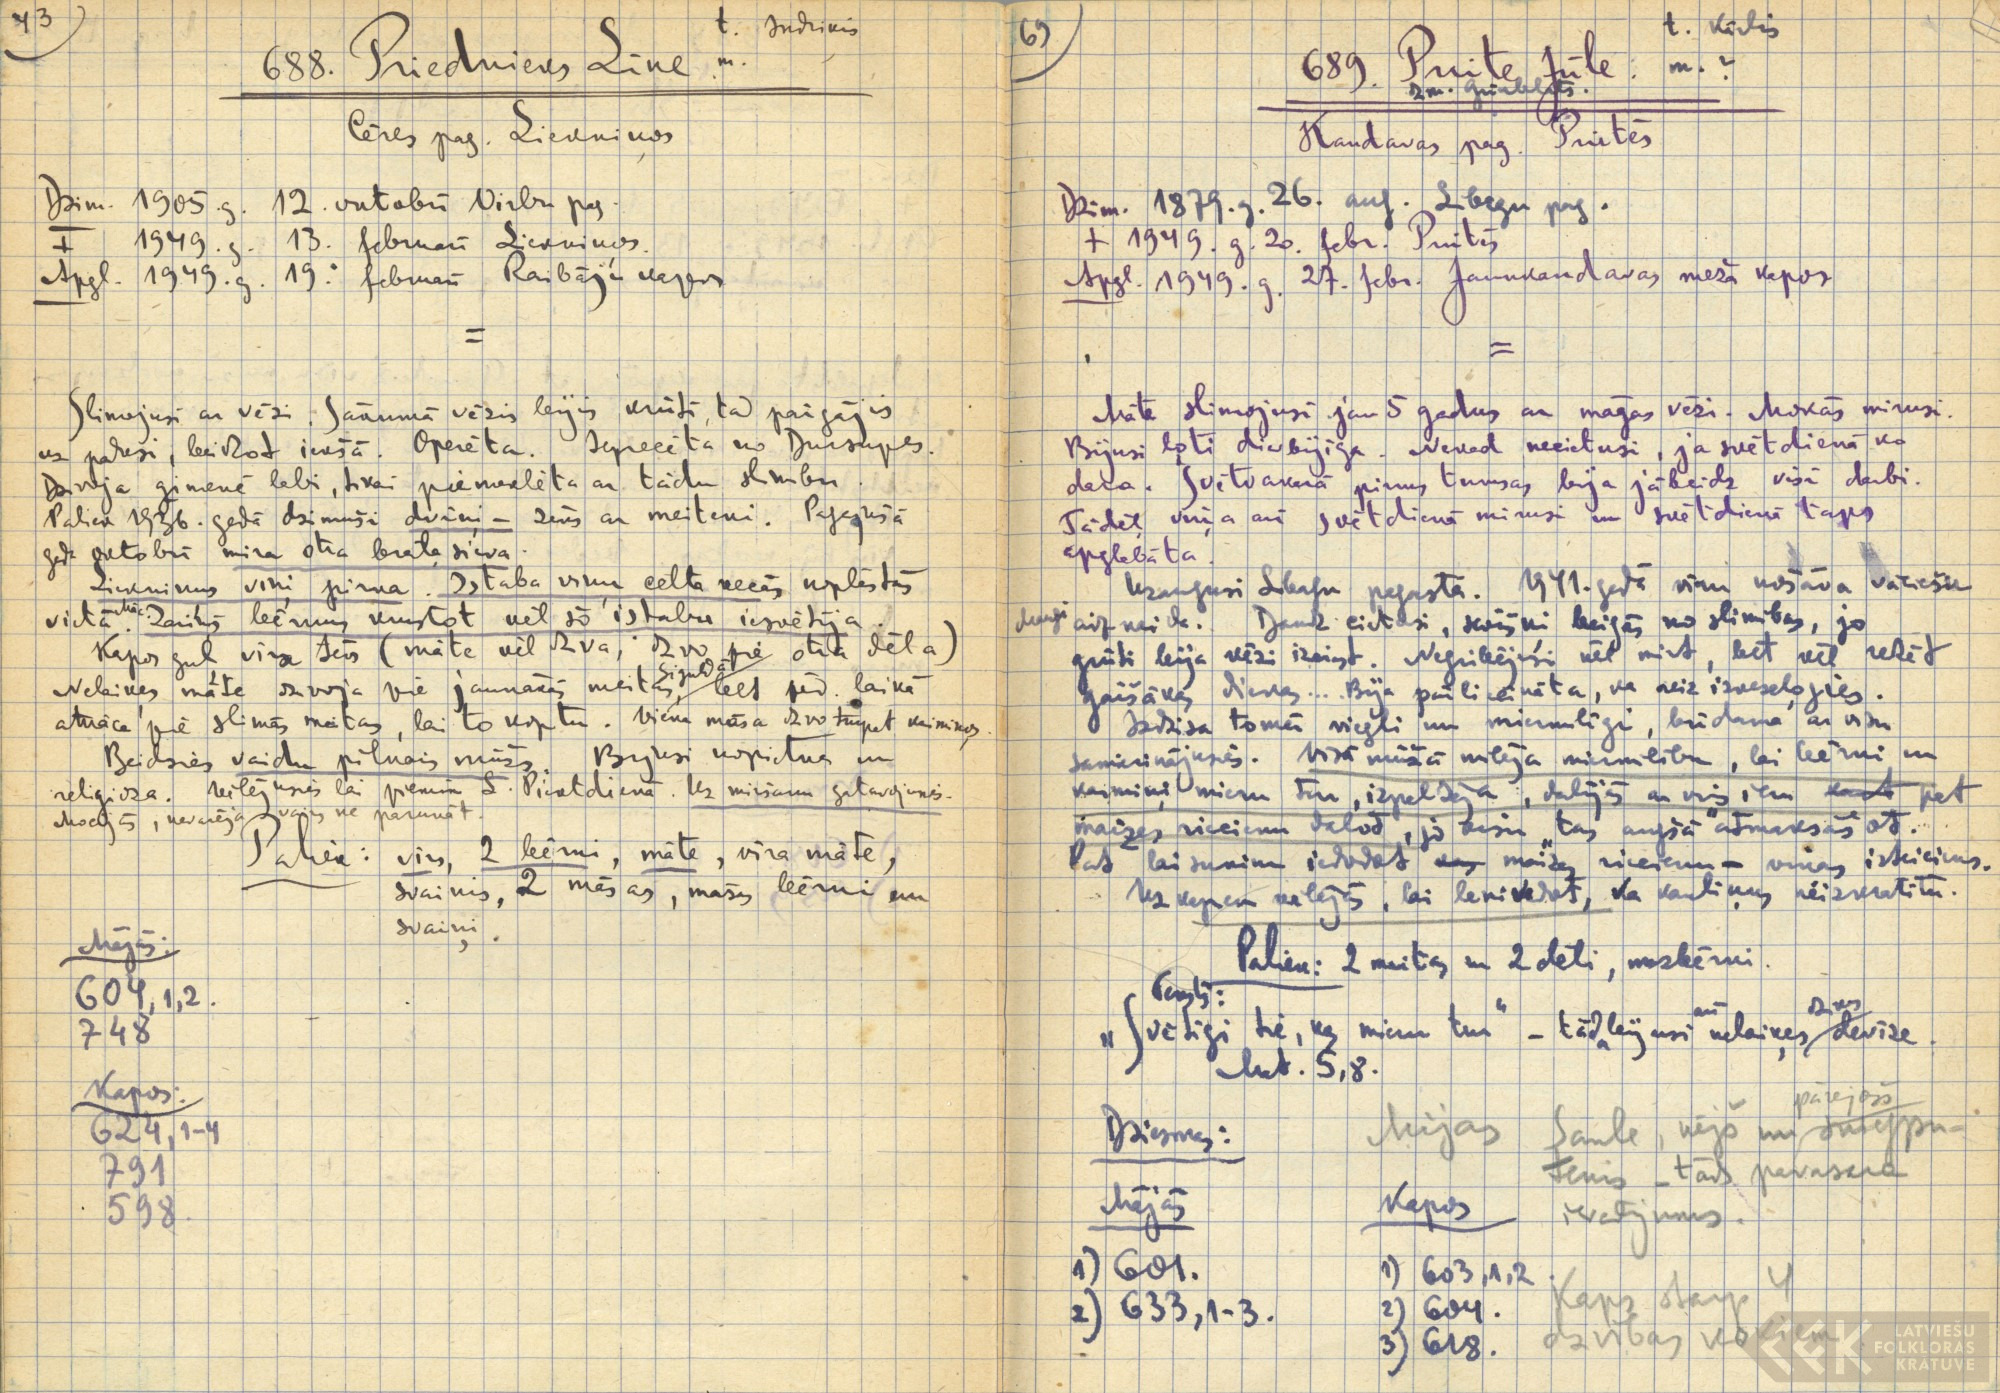 43
t. Indriķis
688. Priednieks Līne m.
Cēres pag. Liekniņos
Dzim. 1905.g. 12. oktobrī Virbu pag.
+ 1949.g. 13. februārī Liekniņos.
Apgl. 1949.g. 19. februārī Raibāju kapos
=
Slimojusi ar vēzi. Sākumā vēzis bijis krūtī, tad pārgājis
uz padusi, beidzot iekšā. Operēta. Ieprecēta no Dursupes.
Dzīvoja ģimenē labi, tikai piemeklēta ar tādu slimību.
Paliek 1936. gadā dzimuši dvīņi – zēns ar meiteni. Pagājušā
gada oktobrī mira otra brāļa sieva.
Liekniņus viņi pirka. Istaba viņu celta vecās noplēstās
vietā. Zariņš bērnus kristot vēl šo istabu iesvētīja.
Kapos guļ vīra tēvs (māte vēl dzīva, dzīvo pie otra dēla)
Nelaiķes māte dzīvoja pie jaunākās meitas, Siguldā bet pēd. laikā
atnāca pie slimās meitas, lai to koptu. Viena māsa dzīvo turpat kaimiņos.
Beidzies vaidu pilnais mūžs. Bijusi nopietna un
reliģioza. Vēlējusies lai piemin L. Piektdienā. Uz miršanu gatavojusies.
Mocījās, nevarēja vairs ne parunāt.
Paliek: vīrs, 2 bērni, māte, vīra māte,
svainis, 2 māsas, māsas bērni un
svaiņi.
Mājās:
604, 1,2.
748
Kapos:
624, 1-4
791
598.
69
t. Kārlis
689. Pruite Jūle. m. ?
dzm. Grīnblats.
Kandavas pag. Pruitēs
Dzim. 1879.g. 26. aug. Lībagu pag.
+ 1949.g. 20. febr. Pruitēs
Apgl. 1949.g. 27. febr. Jaunkandavas meža kapos
=
Māte slimojusi jau 5 gadus ar maģas vēzi. Mokās mirusi.
Bijusi ļoti dievbijīga. Nekad necietusi, ja svētdienā ko
dara. Svētvakarā pirms tumsas bija jābeidz visi darbi.
Tādēļ viņa arī svētdienā mirusi un svētdienā taps
apglabāta.
Uzaugusi Lībagu pagastā. 1941. gadā vīru nošāva vācieši
aiz naida. Daudz cietusi, sevišķi beigās no slimības, jo
grūti bija vēzi izciest. Negribējusi vēl mirt, bet vēl redzēt
gaišākas dienas... Bija pārliecināta, ka reiz izveseļosies.
Izdzisa tomēr viegli un mierīgi, būdama ar visu
samierinājusies. Visā mūžā mīlēja mierīlību, lai bērni un
kaimiņi mieru tur, izpalīdzēja, dalījās ar visiem pat
maizes riecienu dalot, jo viņu "tas augšā" atmaksāšot.
Pat lai sunim iedodot maizes riecienu – viņas izteiciens.
Uz kapiem vēlējās, lai lēni vedot, ka kauliņus neizkratītu.
Paliek: 2 meitas un 2 dēli, mazbērni.
Teksts:
"Svētīgi tie, kas mieru tur" – tāda bijusi arī nelaiķes dzīves devīze.
Mat. 5,8.
Dziesmas:
Mājās
1) 601.
2) 633, 1-3.
Kapos
1) 603, 1,2.
2) 604.
3) 618.
Mijas Saule, vējš un pārejošs sniegpu-
tenis – tāds pavasara
ievadījums.
Kaps starp 4
dzīvības kokiem
LATVIEŠU
FOLKLORAS
KRĀTUVE